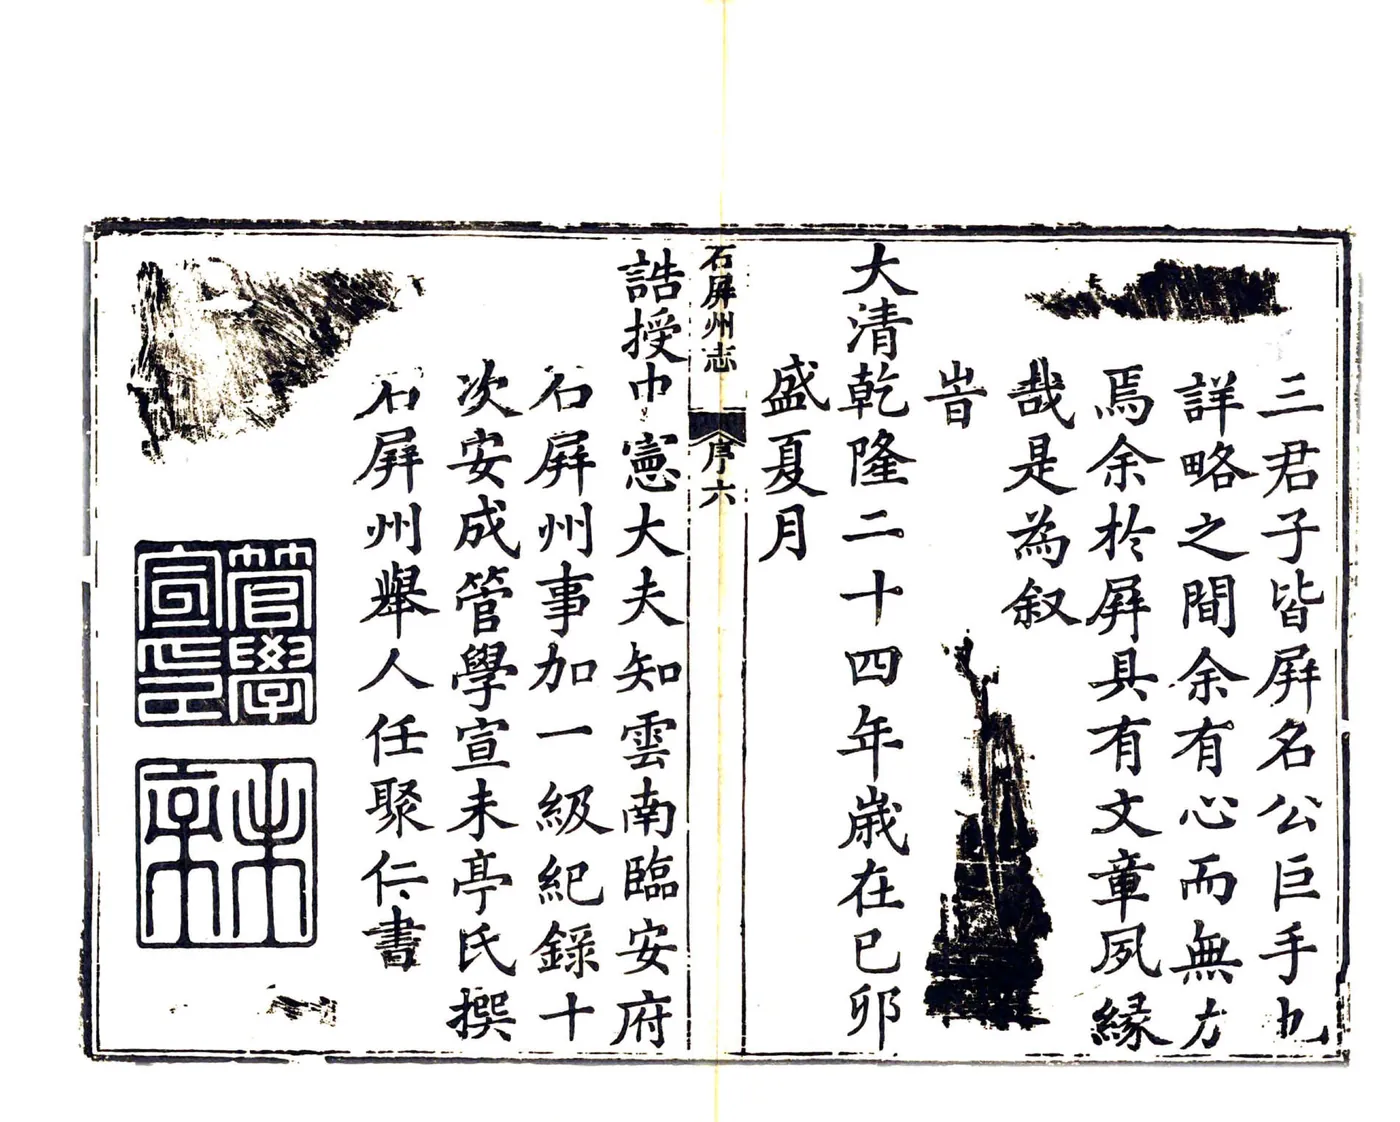 三君子皆屏名公巨手
詳略之間余有心而無
焉余於屏具有文章夙縁
哉是為叙
旹
大清乾隆二十四年歲在已卯
盛夏月
石屏州志 序六
誥授中憲大夫知雲南臨安府
石屏州事加一級紀錄十
次安成管學宣未亭氏撰
石屏州舉人任聚仁書
管學宣印
未亭